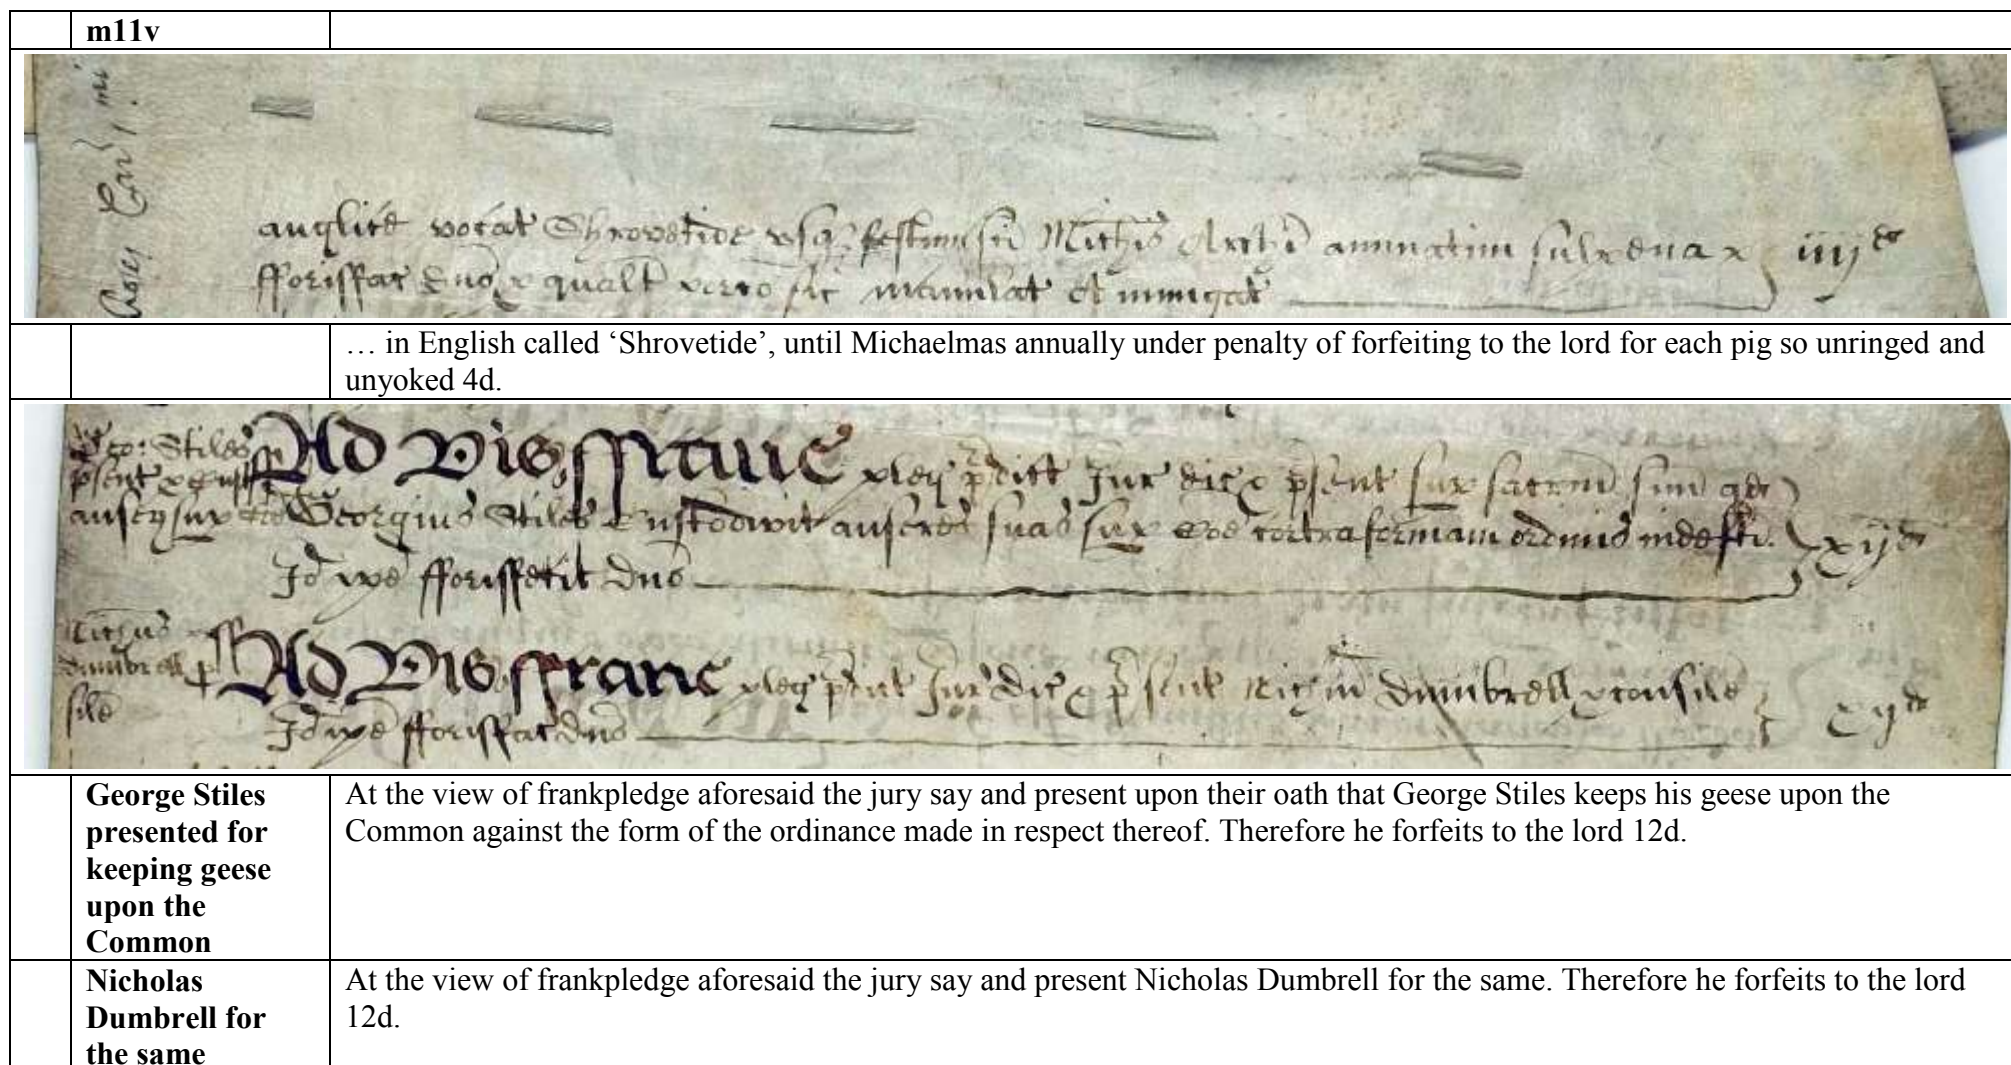 m11v
anglice vocat Shrovetide usq festum sci Michis Archi annuatim sub pena iiijd
fforisfac dno p qualt porco sic
… in English called ‘Shrovetide’, until Michaelmas annually under penalty of forfeiting to the lord for each pig so unringed and
unyoked 4d.
Geo: Stiles
psent p cust
Ad Vis ffranc pleg pdict Jur dic & psent sup sacrm suu qd
Georgius Stiles Custodivit anseres suas sup contra formam ordinis inde fct. xijd
Id ipe fforisfecit dno
Nichus
Dumbrell p
sile
Ad Vis ffranc pleg pdict Jur dic & psent Nichm Dumbrell p consile
Id ipe fforisfac dno xijd
George Stiles
presented for
keeping geese
upon the
Common
At the view of frankpledge aforesaid the jury say and present upon their oath that George Stiles keeps his geese upon the
Common against the form of the ordinance made in respect thereof. Therefore he forfeits to the lord 12d.
Nicholas
Dumbrell for
the same
At the view of frankpledge aforesaid the jury say and present Nicholas Dumbrell for the same. Therefore he forfeits to the lord
12d.